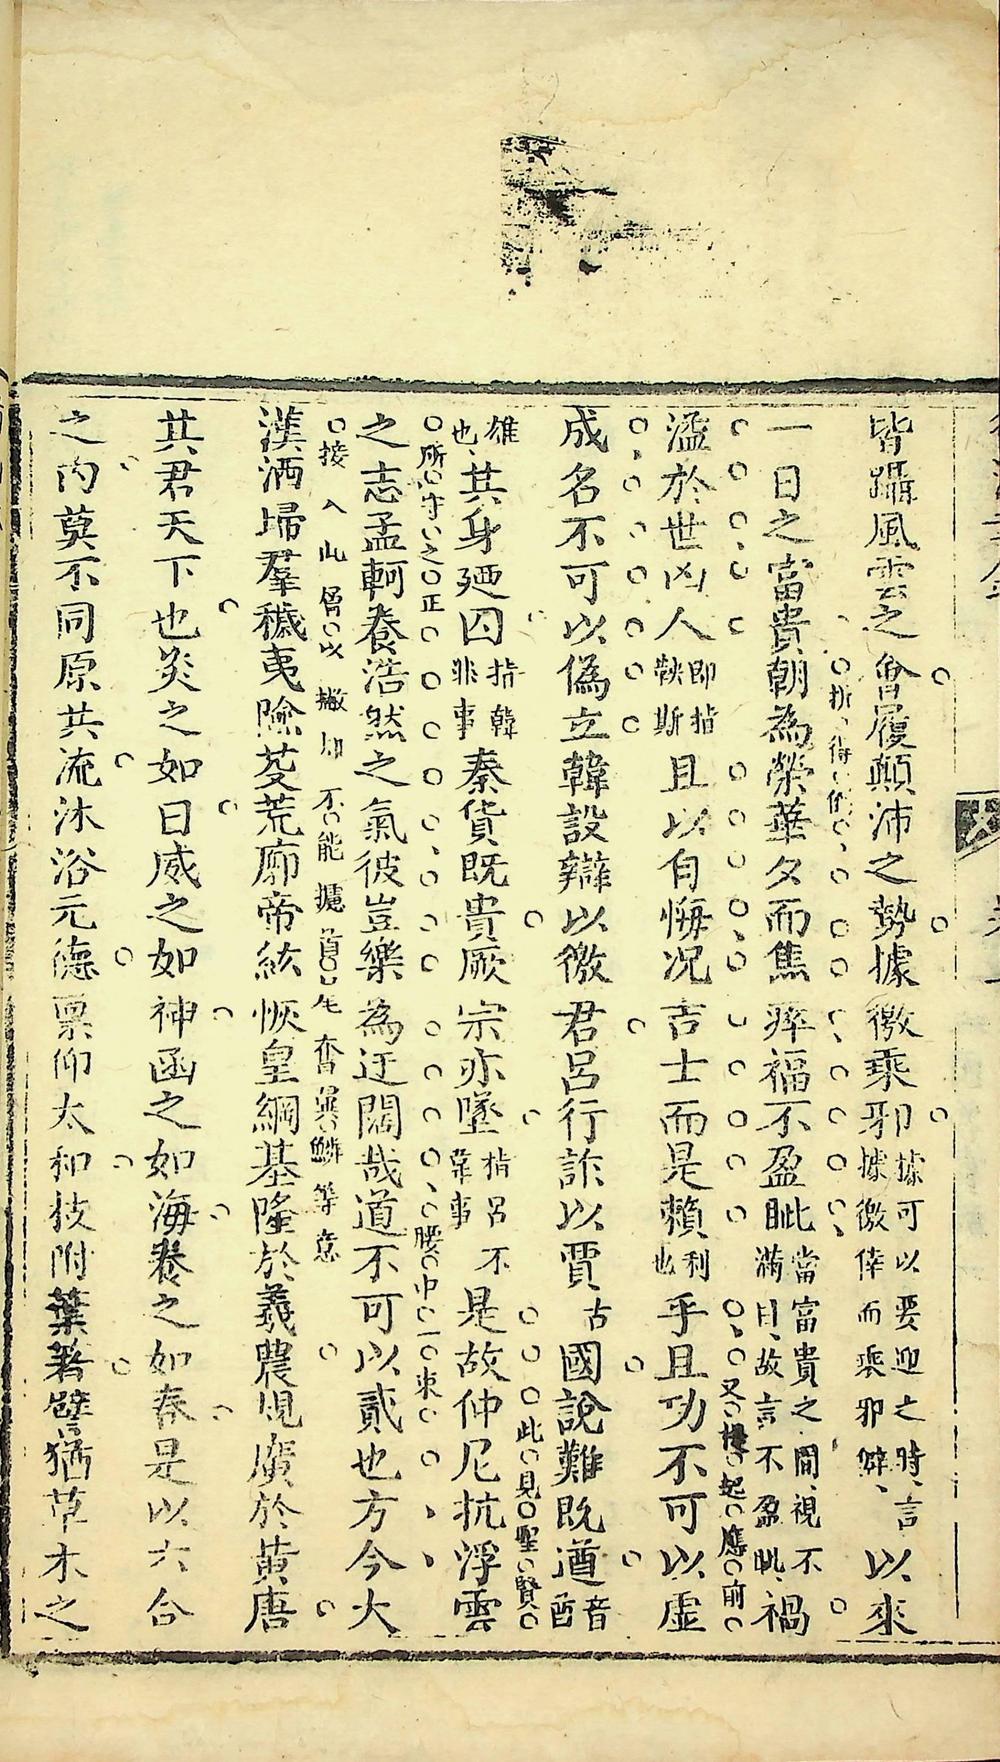 皆躡風雲之會履顛沛之勢據徼乘邪據可以要迎之時言據徼倖而乘邪僻以來
一日之富貴朝為榮華夕而焦瘁福不盈眦當富貴之間視不滿目故言不盈眦禍
溢於世凶人即指鞅斯且以自悔况吉士而是賴利也乎且功不可以虛
又提起應前
成名不可以偽立韓設辯以徼君呂行詐以賈古國說難既遒音酋
此見聖賢
雄也其身廼囚指韓非事秦貨既貴厥宗亦墜指呂不韋事是故仲尼抗浮雲
所守之正
腰中一束
之志孟軻養浩然之氣彼豈樂為迂闊哉道不可以貳也方今大
接入此
不能攄首尾奮翼鱗等意
漢洒埽羣穢夷險芟荒廓帝紘恢皇綱基隆於羲農規廣於黃唐
其君天下也炎之如日威之如神函之如海養之如春是以六合
之內莫不同原共流沐浴元德稟仰太和枝附葉著譬猶草木之